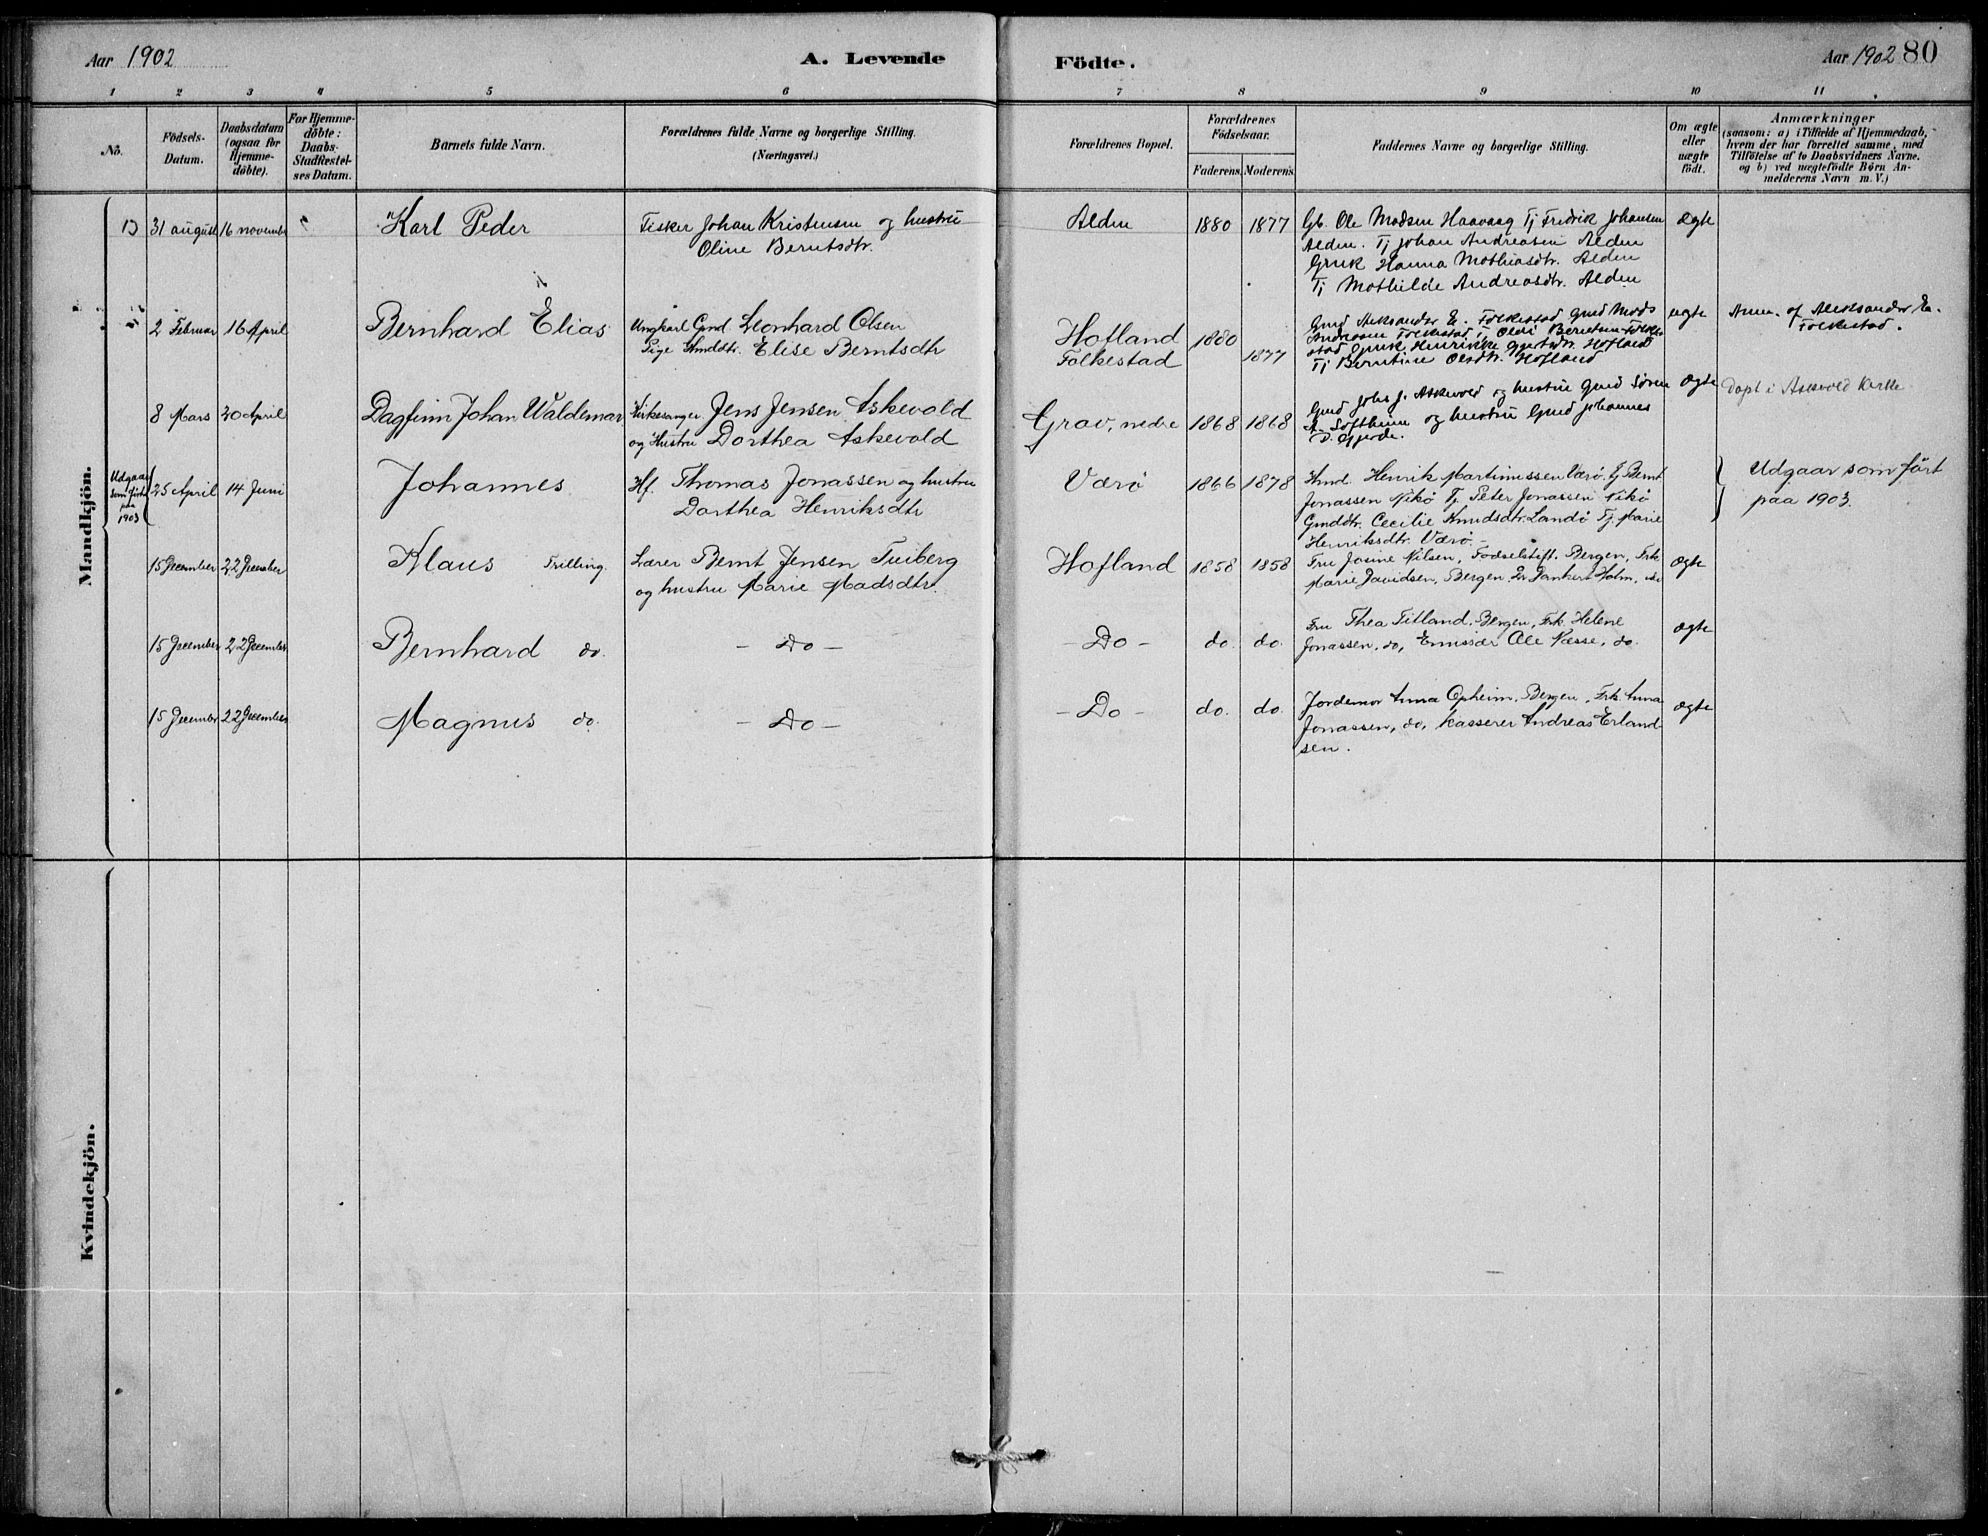 Aar 1902
A. Levende
Födte.
Aar 1902 80
1 2 3 4 5 6 7 8 9 10 11
No.
Födsels-
Datum.
Daabsdatum
(ogsaa for
Hjemme-
döbte).
For Hjemme-
döbte:
Daabs-
Stadfæstel-
ses Datum.
Barnets fulde Navn.
Forældrenes fulde Navne og borgerlige Stilling.
(Næringsvei.)
Forældrenes Bopæl.
Forældrenes
Födselsaar.
Faderens. Moderens.
Faddernes Navne og borgerlige Stilling.
Om ægte
eller
uægte
født.
Anmærkninger
(saasom: a) i Tilfælde af Hjemmedaab,
hvem der har forrettet samme, med
Tilföielse af to Daabsvidners Navne.
og b) ved uægtefödte Börn An-
melderens Navn m. V.)
Mandkjön.
31 august 16 november
Karl Peder
Fisker Johan Kristensen og hustru
Oline Berntsdtr.
Alden
1880 1877
Gb. Ole Madsen Haavaag Tj Fredrik Johansen
Alden. Tj Johan Andreasen Alden
Gmk Hanna Mathiasdtr. Alden
Tj Mathilde Andreasdtr. Alden
ægte
2 Februar 16 April
Bernhard Elias
Ungkarl Gmd Leonhard Olsen
Pige Gmddtr. Elise Berntsdtr
Hofland
Folkestad
1880
1877
Gmd Aleksander E. Folkestad Gmd Mads
Andreasen Folkestad Tj Berntsen Folke-
stad Gmk Henrikke Hofland
Tj Berntine Olsdtr. Hofland
uægte
Anm. af Aleksander E.
Folkestad.
8 Mars 30 April
Dagfinn Johan Waldemar
Kirkesanger Jens Jensen Askevold
og Hustru Dorthea Askevold
Grov, nedre
1868 1868
Gmd Johs J. Askevold og hustru Gmd Søren
A. og hustru Gmd Johannes
D. Gjerde.
ægte
Døpt i Askevold Kirke
Udgaar
som ført
paa
1903
25 April 14 Juni
Johannes
Hf. Thomas Jonassen og hustru
Dorthea Henriksdtr
Værø
1866 1878
Hmd. Henrik Martinussen Værø. Tj. Bernt
Jonassen Nikø Tj. Peter Jonassen Nikø
Gmddtr. Cecilie Knudsdtr. Landø Tj. Marie
Henriksdtr. Værø.
Udgaar som ført
paa 1903.
15 December 22 December
Klaus Trilling
Lærer Bernt Jensen Tuiberg
og hustru Marie Madsdtr.
Hofland
1858 1858
Fru Josine Nilsen, Fødselstift. Bergen, Frk.
Marie Davidsen, Bergen, Dankert Holm,
ægte
15 December 22 December
Bernhard do.
- Do -
- Do -
do. do.
Fru Thea Titland, Bergen, Frk. Helene
Jonassen, do, Emissær Ole Næsse, do.
ægte
15 December 22 December
Magnus do.
- Do -
- Do -
do. do.
Jordemor Anna Opheim, Bergen, Frk. Anna
Jonassen, do, Kasserer Andreas Erland-
sen.
ægte
Kvindekjön.